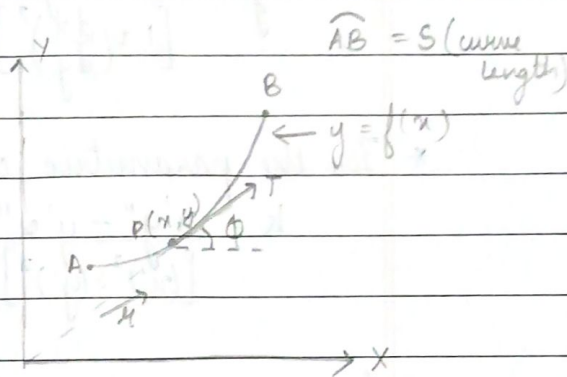 Y
AB = S (curve
length)
B
y = f(x)
T
P(x,y)
ϕ
A
X